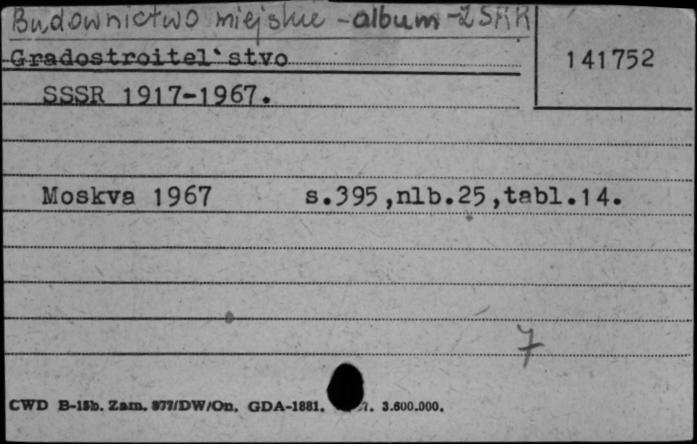 Budownictwo miejskie - album - ZSRR
Gradostroitel'stvo
141752
SSSR 1917-1967.
Moskva 1967 s.395,nlb.25,tabl.14.
7
CWD B-15b. Zam. 977/DW/On. GDA-1881. 7. 3.600.000.